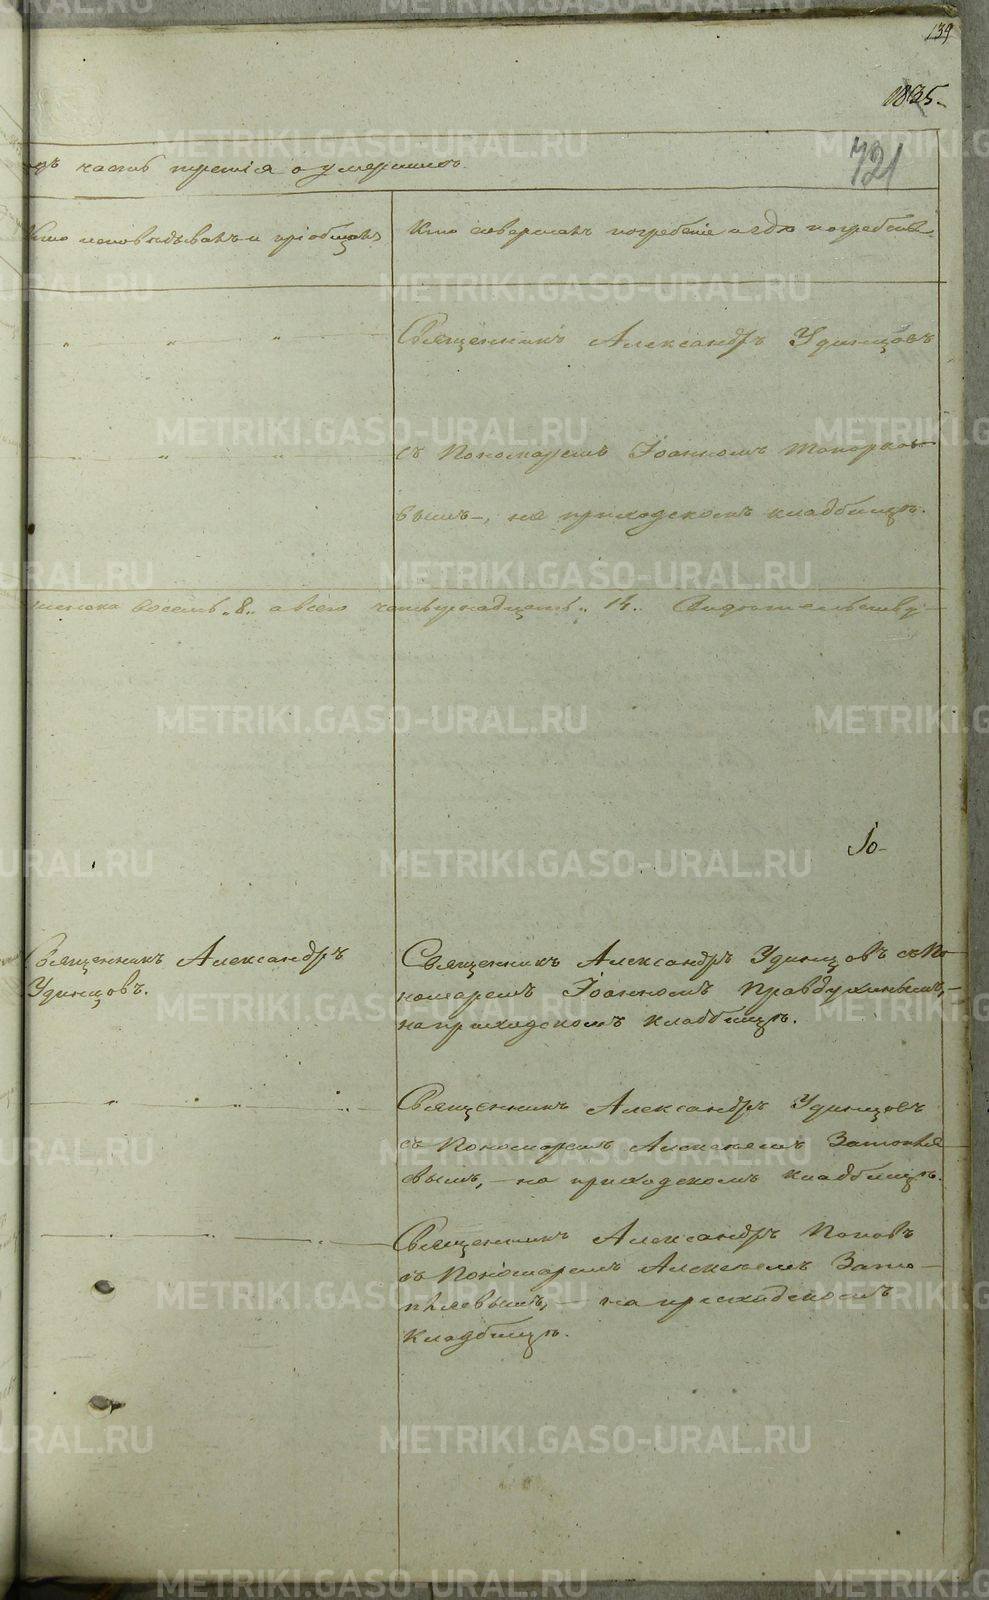 139
1835.
721
дъ часть третія о умершихъ
Кто исповѣдывалъ и пріобщалъ
Кто совершалъ погребеніе и гдѣ погребены.
Священникъ Александръ Удинцовъ
съ Пономаремъ Іоанномъ Топорко-
вымъ, на приходскомъ кладбищѣ.
женска восемь „8„ а всего четырнадцать „14„ Свидѣтельству-
Іо-
Священникъ Александръ
Удинцовъ.
Священникъ Александръ Удинцовъ съ По
номаремъ Іоанномъ Правдухинымъ,-
на приходскомъ кладбищѣ.
Священникъ Александръ Удинцовъ
съ Пономаремъ Алексѣемъ Затопляе
вымъ,- на приходскомъ кладбищѣ.
Священникъ Александръ Поповъ
съ Пономаремъ Алексѣемъ Зато-
пляевымъ,- на приходскомъ
кладбищѣ.
METRIKI.GASO-URAL.RU